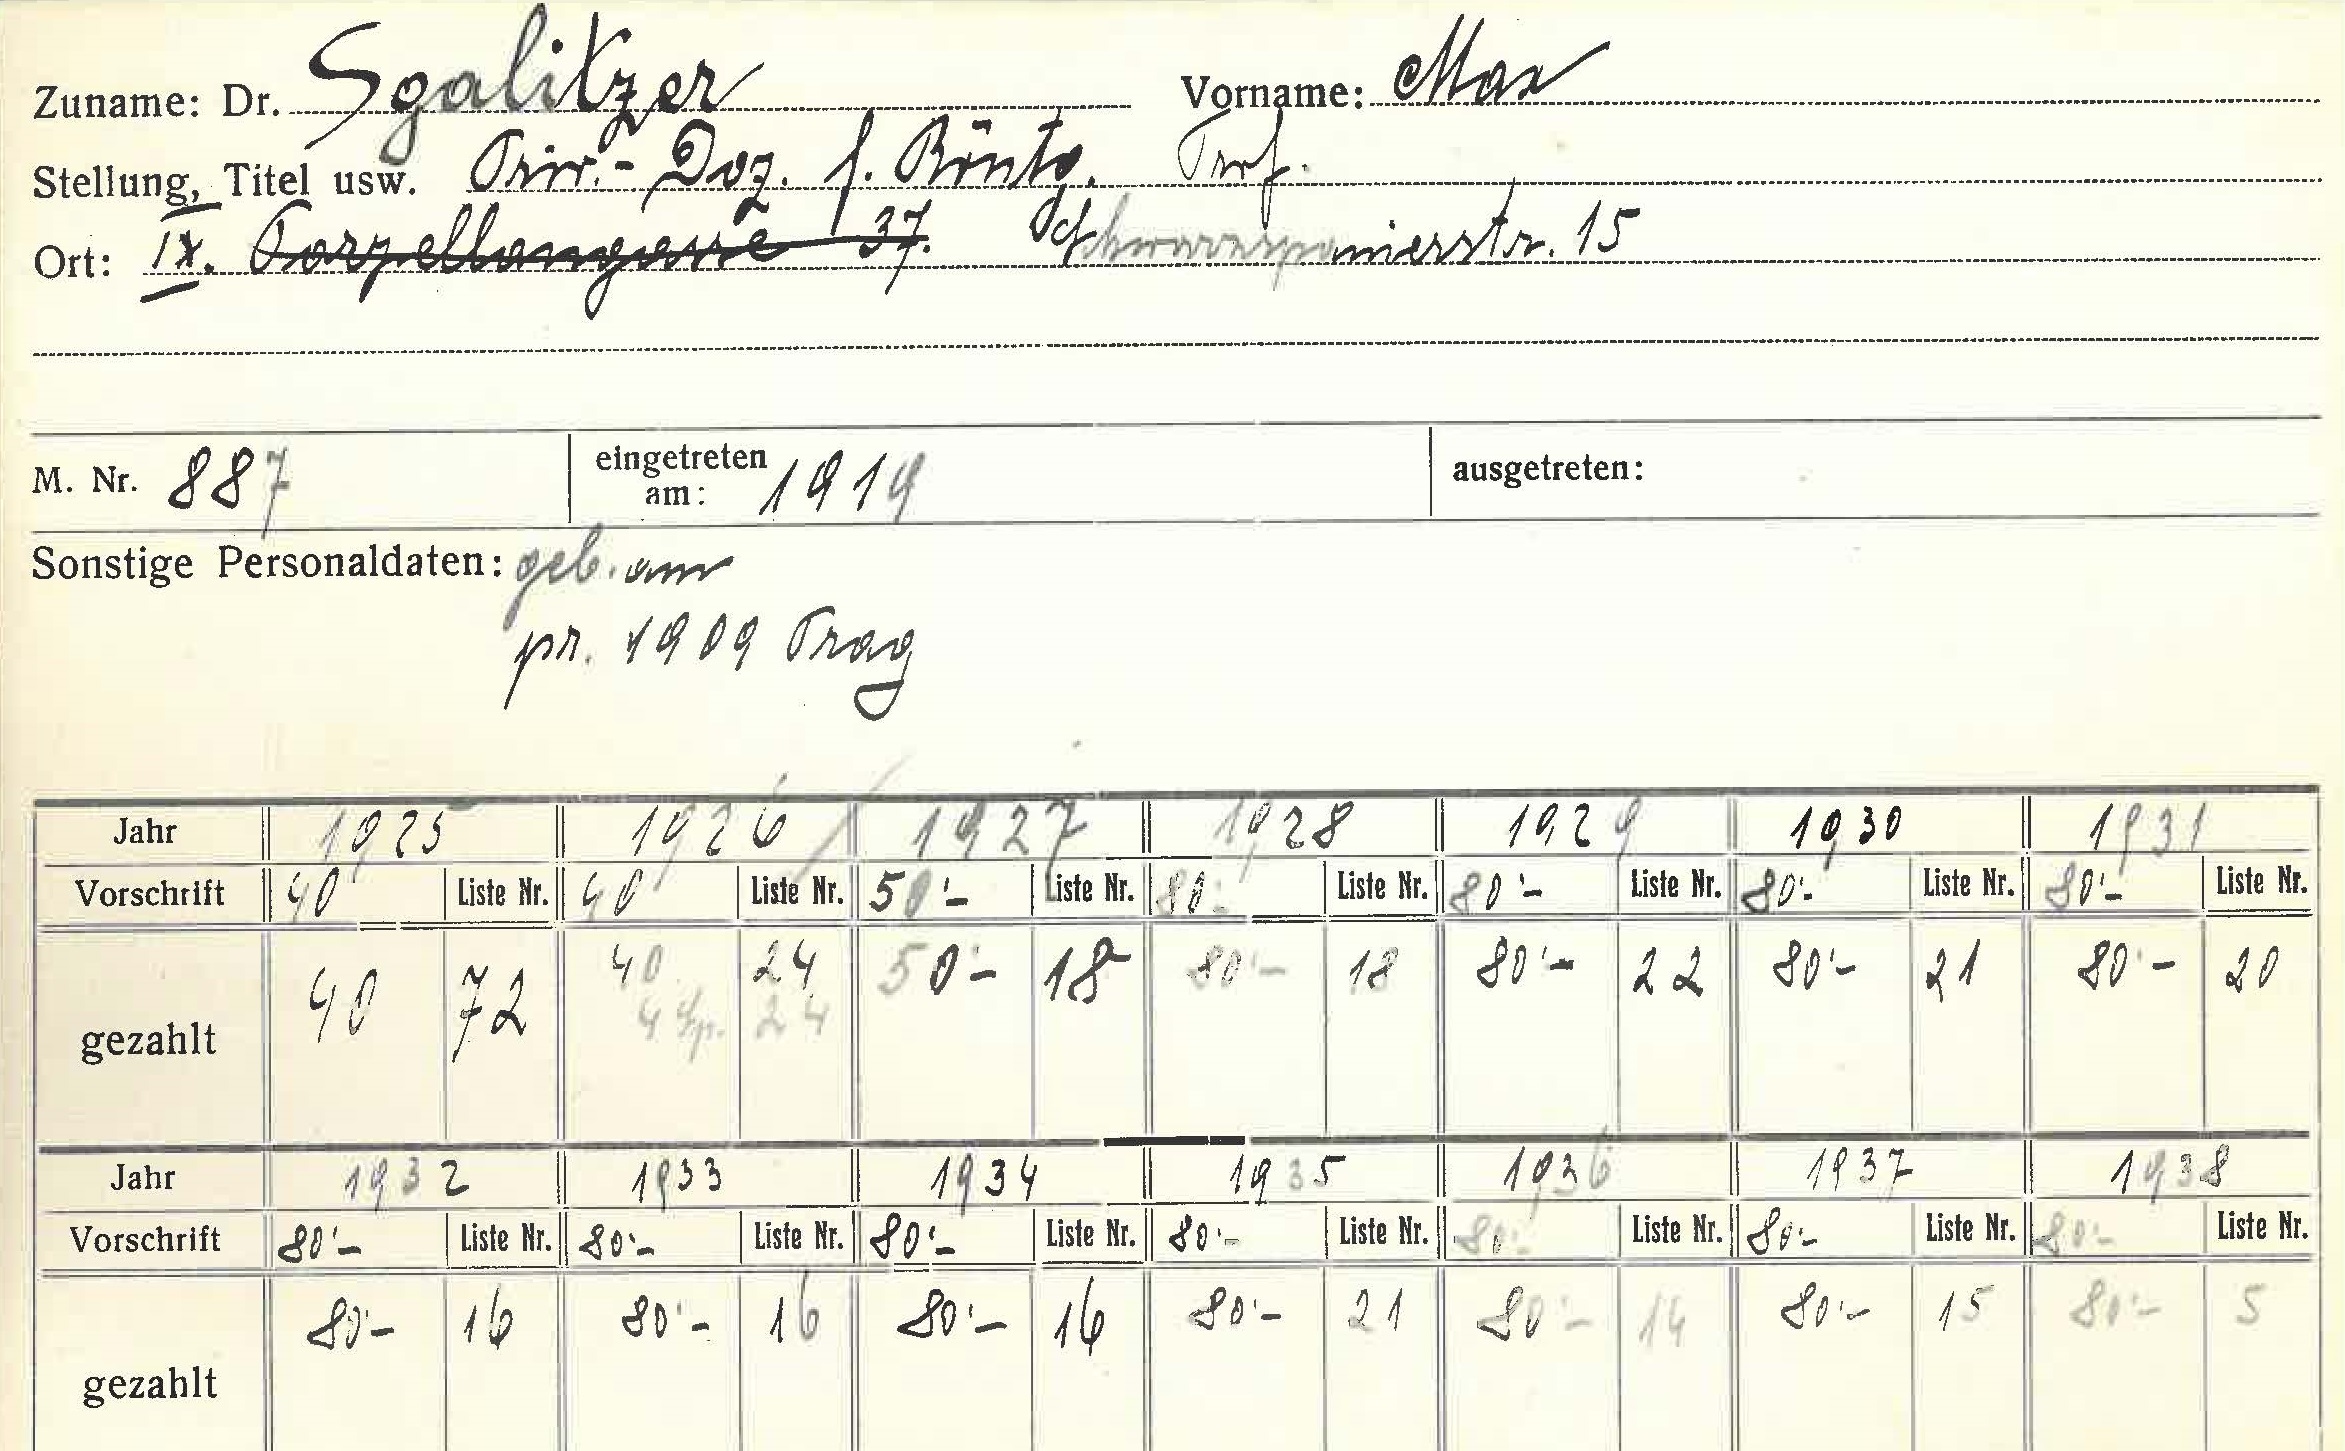 Zuname: Dr. Sgalitzer Vorname: Max
Stellung, Titel usw. Priv.-Doz. f. Röntg. Prof.
Ort: IX. Porzellangasse 37. Schwarzspanierstr. 15
M. Nr. 887 eingetreten am: 1919 ausgetreten:
Sonstige Personaldaten: geb. am
pr. 1909 Prag
Jahr 1925 1926 1927 1928 1929 1930 1931
Vorschrift 40 Liste Nr. 40 Liste Nr. 50'- Liste Nr. 80'- Liste Nr. 80'- Liste Nr. 80'- Liste Nr. 80'- Liste Nr.
gezahlt 40 72 40 24 50'- 18 80'- 18 80'- 22 80'- 21 80'- 20
4 24
Jahr 1932 1933 1934 1935 1936 1937 1938
Vorschrift 80'- Liste Nr. 80'- Liste Nr. 80'- Liste Nr. 80'- Liste Nr. 80'- Liste Nr. 80'- Liste Nr. 80'- Liste Nr.
gezahlt 80'- 16 80'- 16 80'- 16 80'- 21 80'- 14 80'- 15 80'- 5